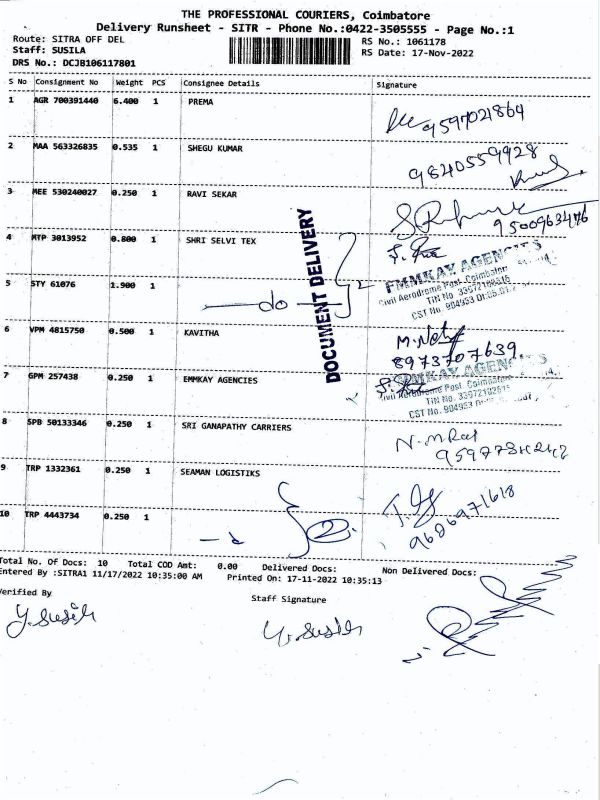 THE PROFESSIONAL COURIERS, Coimbatore
Delivery Runsheet - SITR - Phone No.:0422-3505555 - Page No.:1
Route: SITRA OFF DEL
Staff: SUSILA
DRS No.: DCJB106117801
RS No.: 1061178
RS Date: 17-Nov-2022
S No Consignment No Weight PCS Consignee Details Signature
1 AGR 700391440 6.400 1 PREMA 9597021864
2 MAA 563326835 0.535 1 SHEGU KUMAR 9840559928
3 MEE 530240027 0.250 1 RAVI SEKAR 9500963476
4 MTP 3013952 0.800 1 SHRI SELVI TEX
EMMKAY AGENCIES
Civil Aerodrome Post, Coimbatore
TIN No 33972102615
CST No. 904953
5 STY 61076 1.900 1 —do—
DOCUMENT DELIVERY
6 VPM 4815750 0.500 1 KAVITHA 8973707639
7 GPM 257438 0.250 1 EMMKAY AGENCIES
EMMKAY AGENCIES
Civil Aerodrome Post, Coimbatore
TIN No. 33972102615
CST No. 904953
8 SPB 50133346 0.250 1 SRI GANAPATHY CARRIERS
9 TRP 1332361 0.250 1 SEAMAN LOGISTIKS
10 TRP 4443734 0.250 1 2 9686971618
Total No. Of Docs: 10 Total COD Amt: 0.00 Delivered Docs: Non Delivered Docs:
Entered By :SITRA1 11/17/2022 10:35:00 AM Printed On: 17-11-2022 10:35:13
Verified By Staff Signature
Y. Susila Y. Susila